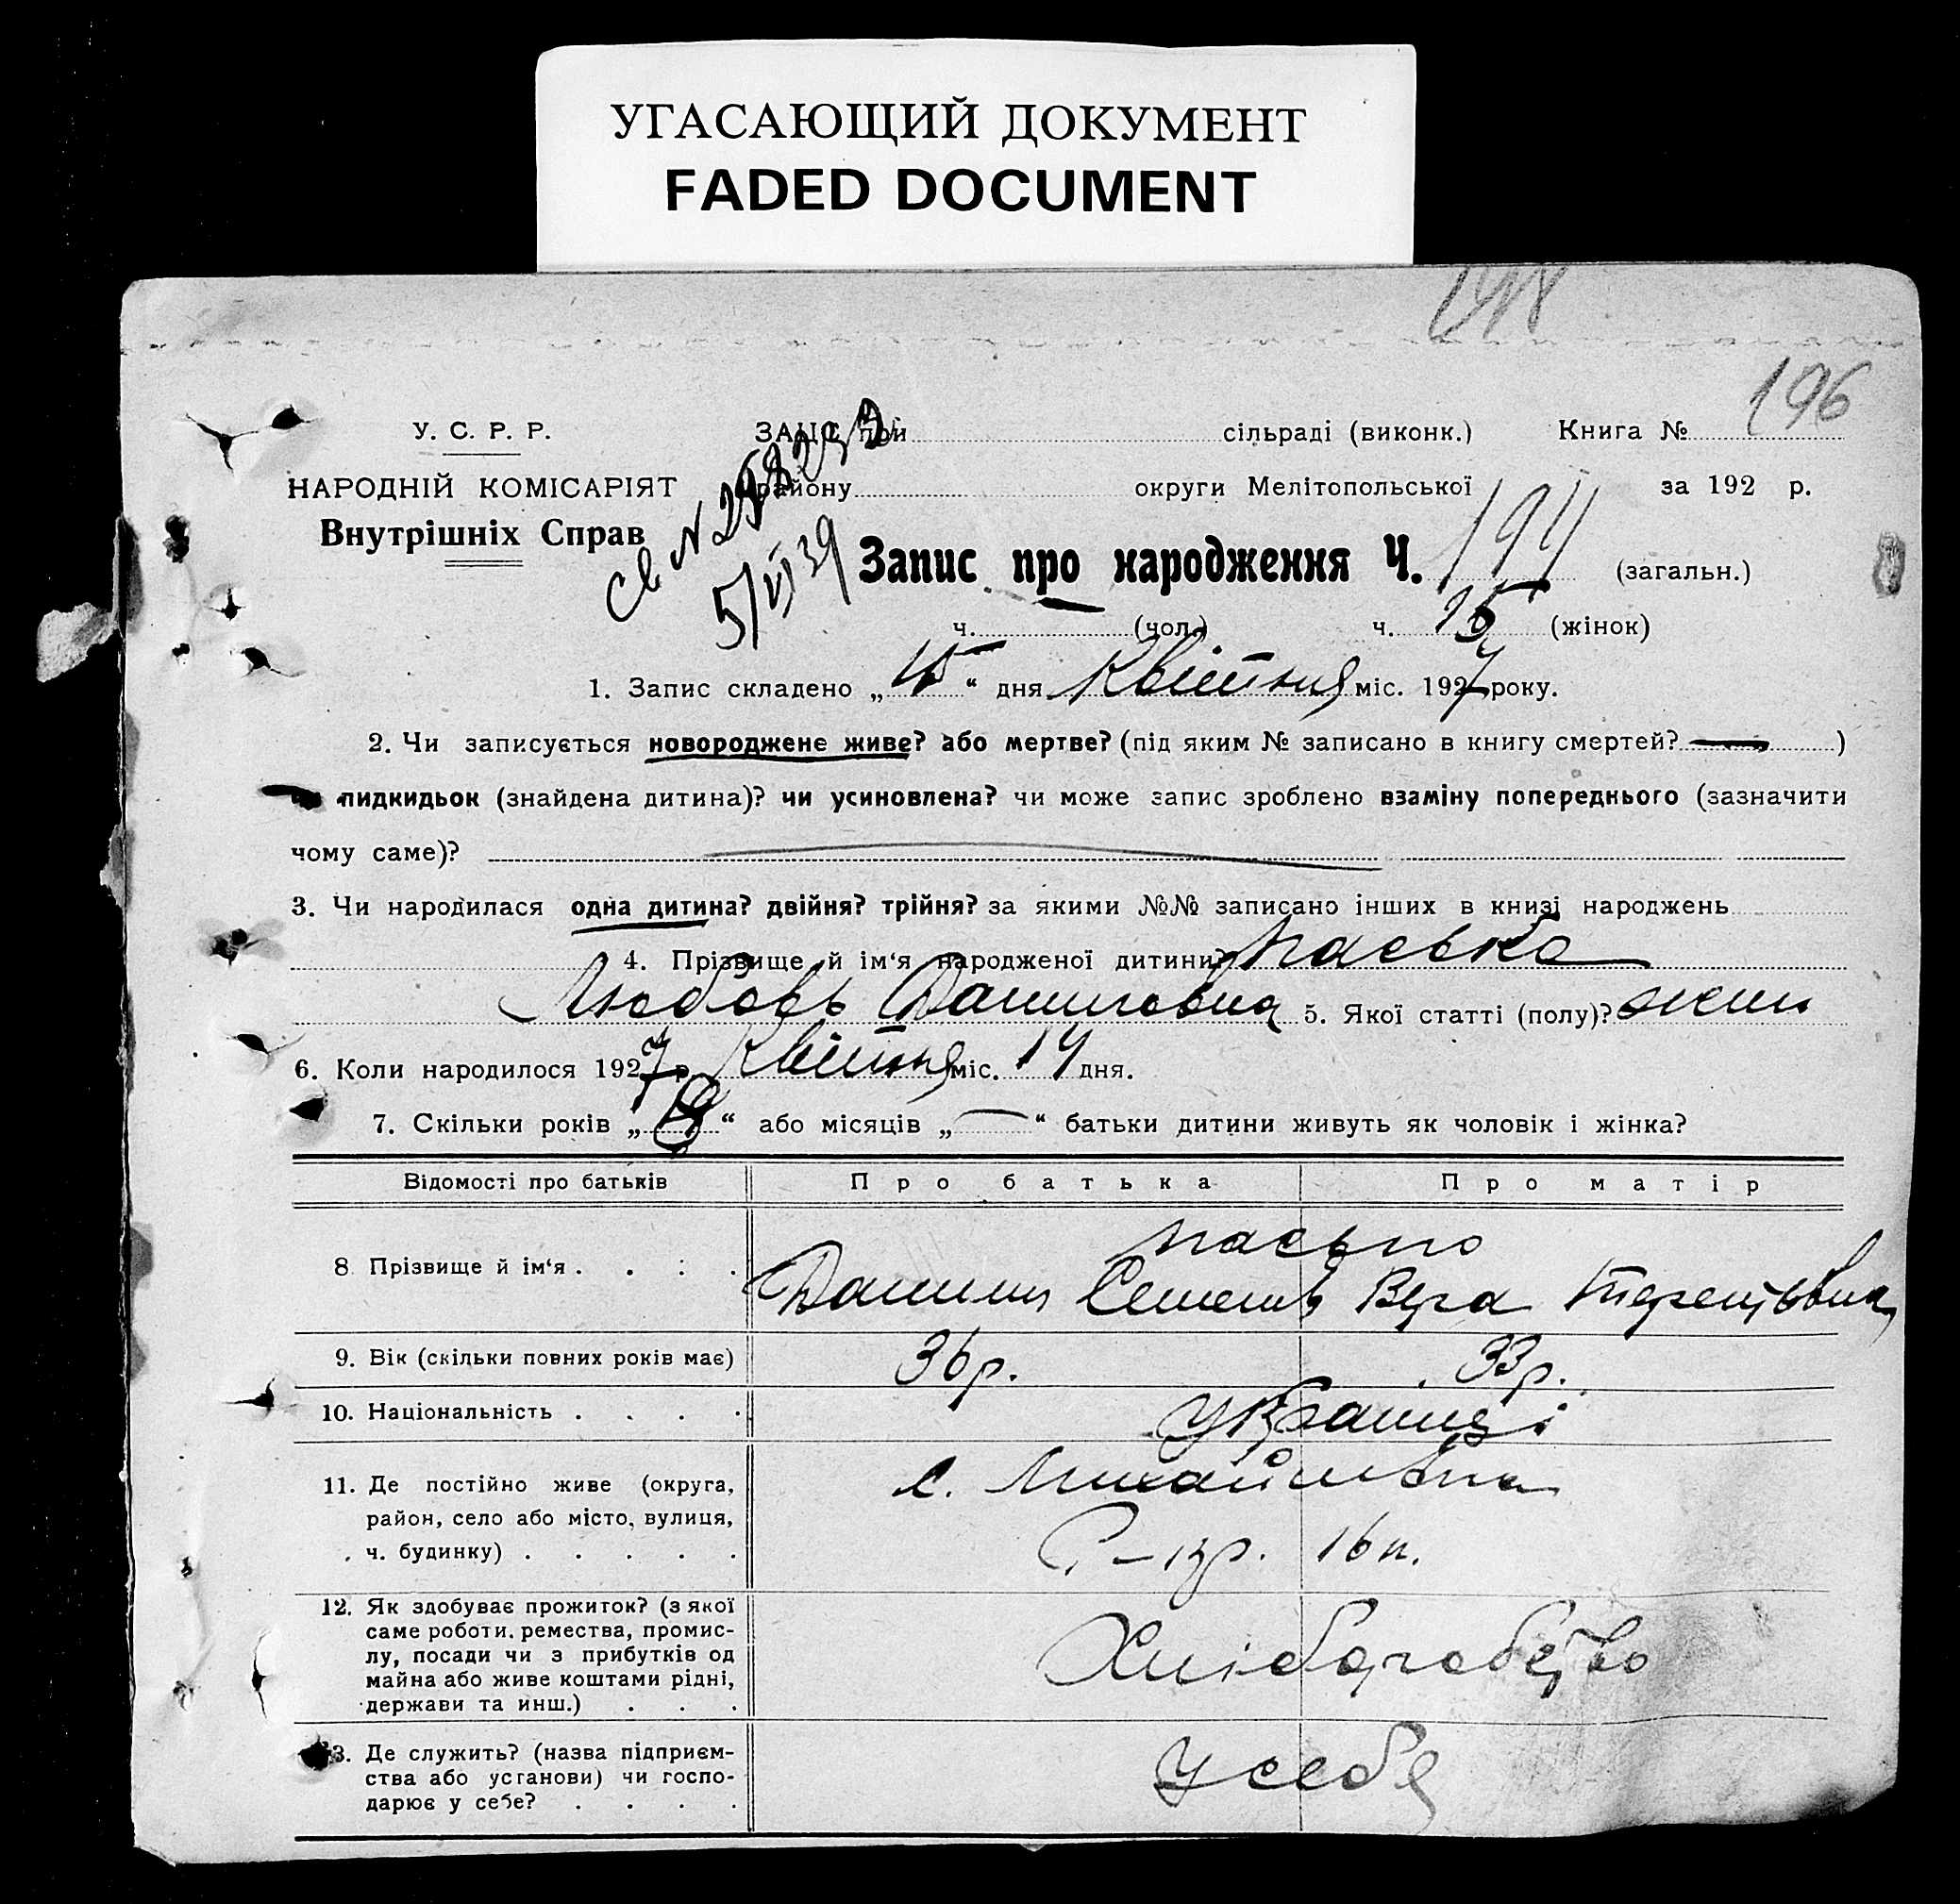 УГАСАЮЩИЙ ДОКУМЕНТ
FADED DOCUMENT
196
У. С. Р. Р.
ЗАЦС при сільраді (виконк.) Книга №
НАРОДНІЙ КОМІСАРІЯТ
району округи Мелітопольської за 192 р.
Внутрішніх Справ
5/VI 39
Запис про народження Ч. 194 (загальн.)
ч. (чол.) ч. (жінок)
1. Запис складено „15“ дня Квітня міс. 1927 року.
2. Чи записується новороджене живе? або мертве? (під яким № записано в книгу смертей? — )
пидкидьок (знайдена дитина)? чи усиновлена? чи може запис зроблено взаміну попереднього (зазначити
чому саме)?
3. Чи народилася одна дитина? двійня? трійня? за якими №№ записано інших в книзі народжень
4. Прізвище й ім‘я народженої дитини?
Любовь Даниловна 5. Якої статті (полу)? жин
6. Коли народилося 1927 р. Квітня міс. 14 дня.
7. Скільки років „ “ або місяців „—“ батьки дитини живуть як чоловік і жінка?
Відомості про батьків Про батька Про матір
8 Прізвище й ім‘я . . : .
Данило Семенів Вера Терентьівна
9. Вік (скільки повних років має) 36 р. 33 р.
10. Національність . . . . Українці
11. Де постійно живе (округа, с. Михайлівка
район, село або місто, вулиця,
ч. будинку) . . . . . 16 п.
12. Як здобуває прожиток? (з якої
саме роботи. ремества, промис-
лу, посади чи з прибутків од
майна або живе коштами рідні,
держави та инш.) . . .
Хліборобство
13. Де служить? (назва підприєм-
ства або установи) чи госпо-
дарює у себе? . . . .
У себе